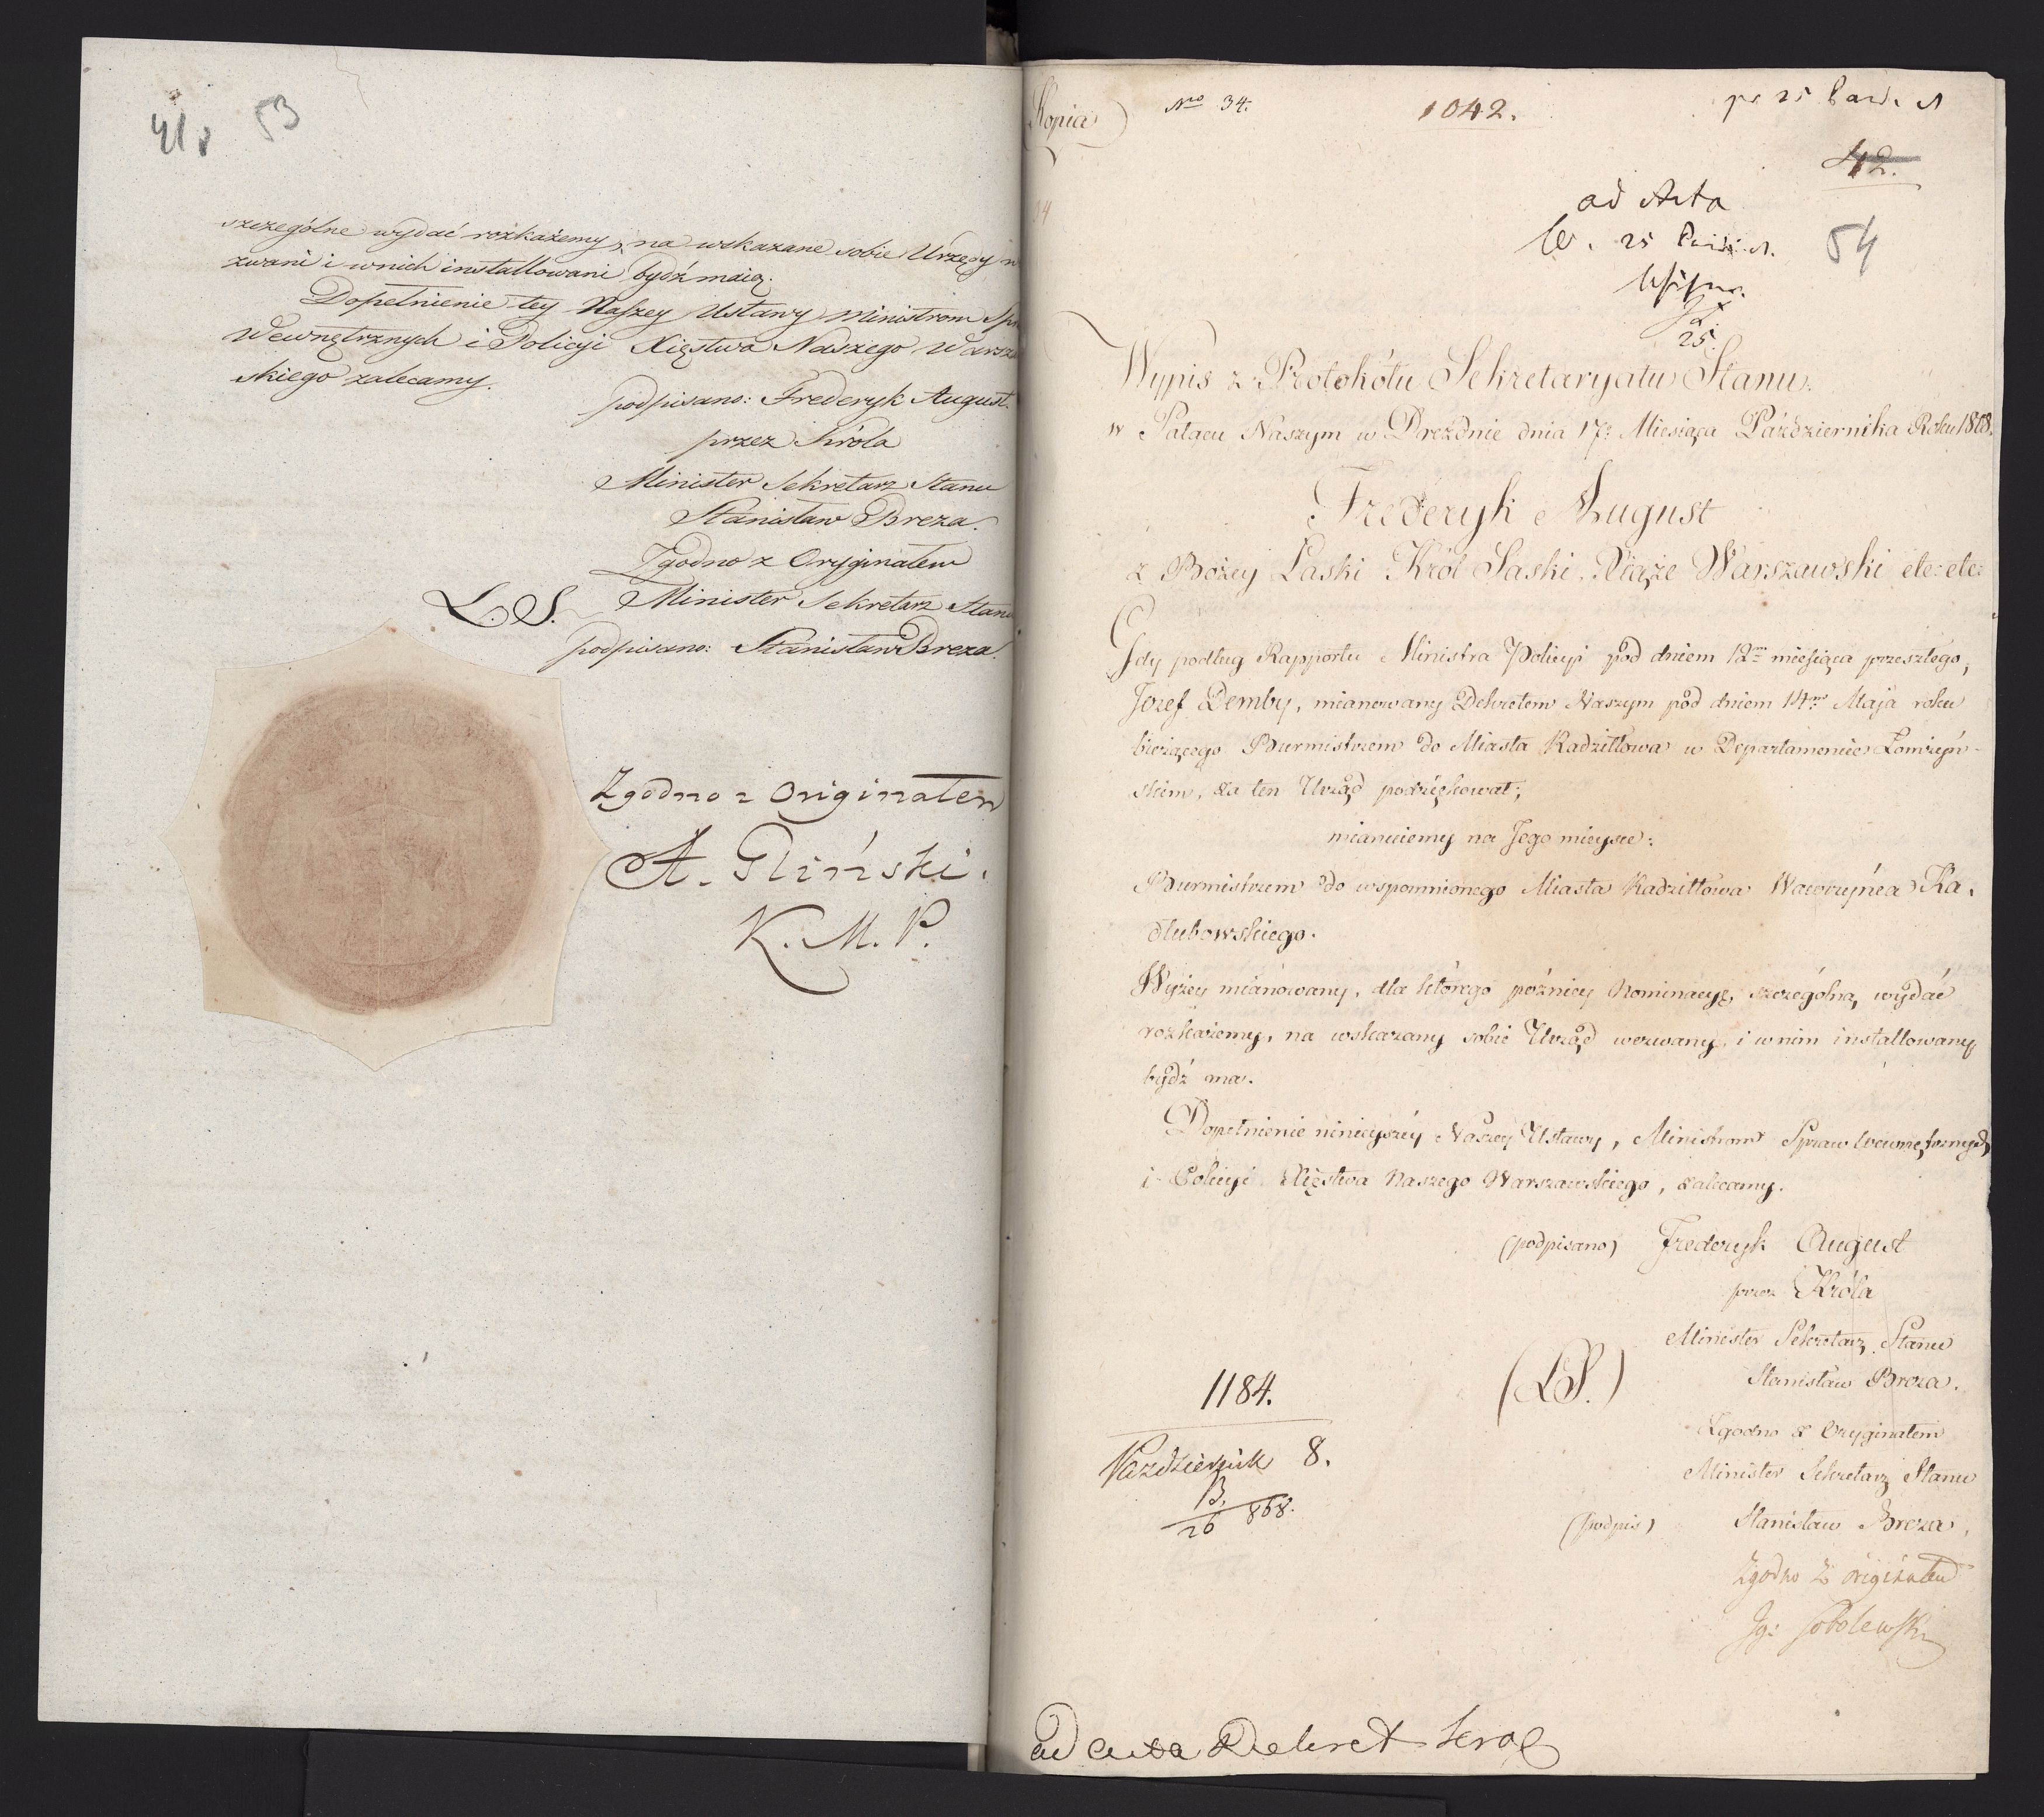 41v 53
szczególne wydać rozkażemy, na wskazane sobie Urzędy w
zwani i w nich installowani bydź maią.
Dopełnienie tey Naszey Ustawy Ministrom Spr
Wewnętrznych i Policyi Xięstwa Naszego Warsza
skiego zalecamy.
podpisano: Frederyk August.
przez Króla
Minister Sekretarz Stanu
Stanisław Breza.
Zgodno z Oryginałem
L.S. Minister Sekretarz Stanu
podpisano: Stanisław Breza.
Zgodno z Originałem
A. Gliński.
K. M. P.
Kopia
Nro 34.
1042.
pr 25
42.
ad Acta
25
54
25.
Wypis z Protokółu Sekretaryatu Stanu.
w Pałacu Naszym w Dreźdnie dnia 17. Miesiąca Października Roku 1808.
Frederyk August
z Bożey Łaski Król Saski, Xiąże Warszawski etc: etc:
Gdy podług Rapportu Ministra Policyi pod dniem 12m miesiąca przeszłego,
Jozef Demby, mianowany Dekretem Naszym pod dniem 14m Maja roku
bieżącego Burmistrzem do Miasta Radziłłowa w Departamencie Łomżyń-
skim, za ten Urząd podziękował;
mianuiemy na Jego mieysce:
Burmistrzem do wspomnionego Miasta Radziłłowa Wawrzyńca Ka-
dłubowskiego.
Wyżey mianowany, dla którego późniey Nominacyę, szczególną, wydać
rozkażemy, na wskazany sobie Urząd wezwany, i w nim installowany
bydź ma.
Dopełnienie ninieyszéy Naszey Ustawy, Ministrom Spraw Wewnętrznych
i Policyi Xięstwa Naszego Warszawskiego, zalecamy.
(podpisano) Frederyk August
przez Króla
Minister Sekretarz Stanu
(LS.) Stanisław Breza.
Zgodno z Oryginałem
Minister Sekretarz Stanu
(podpis) Stanisław Breza,
Zgodno z originałem
Ig: Sobolewski
1184.
Październik 8.
B.
26 868.
ad acta Dekret Krol